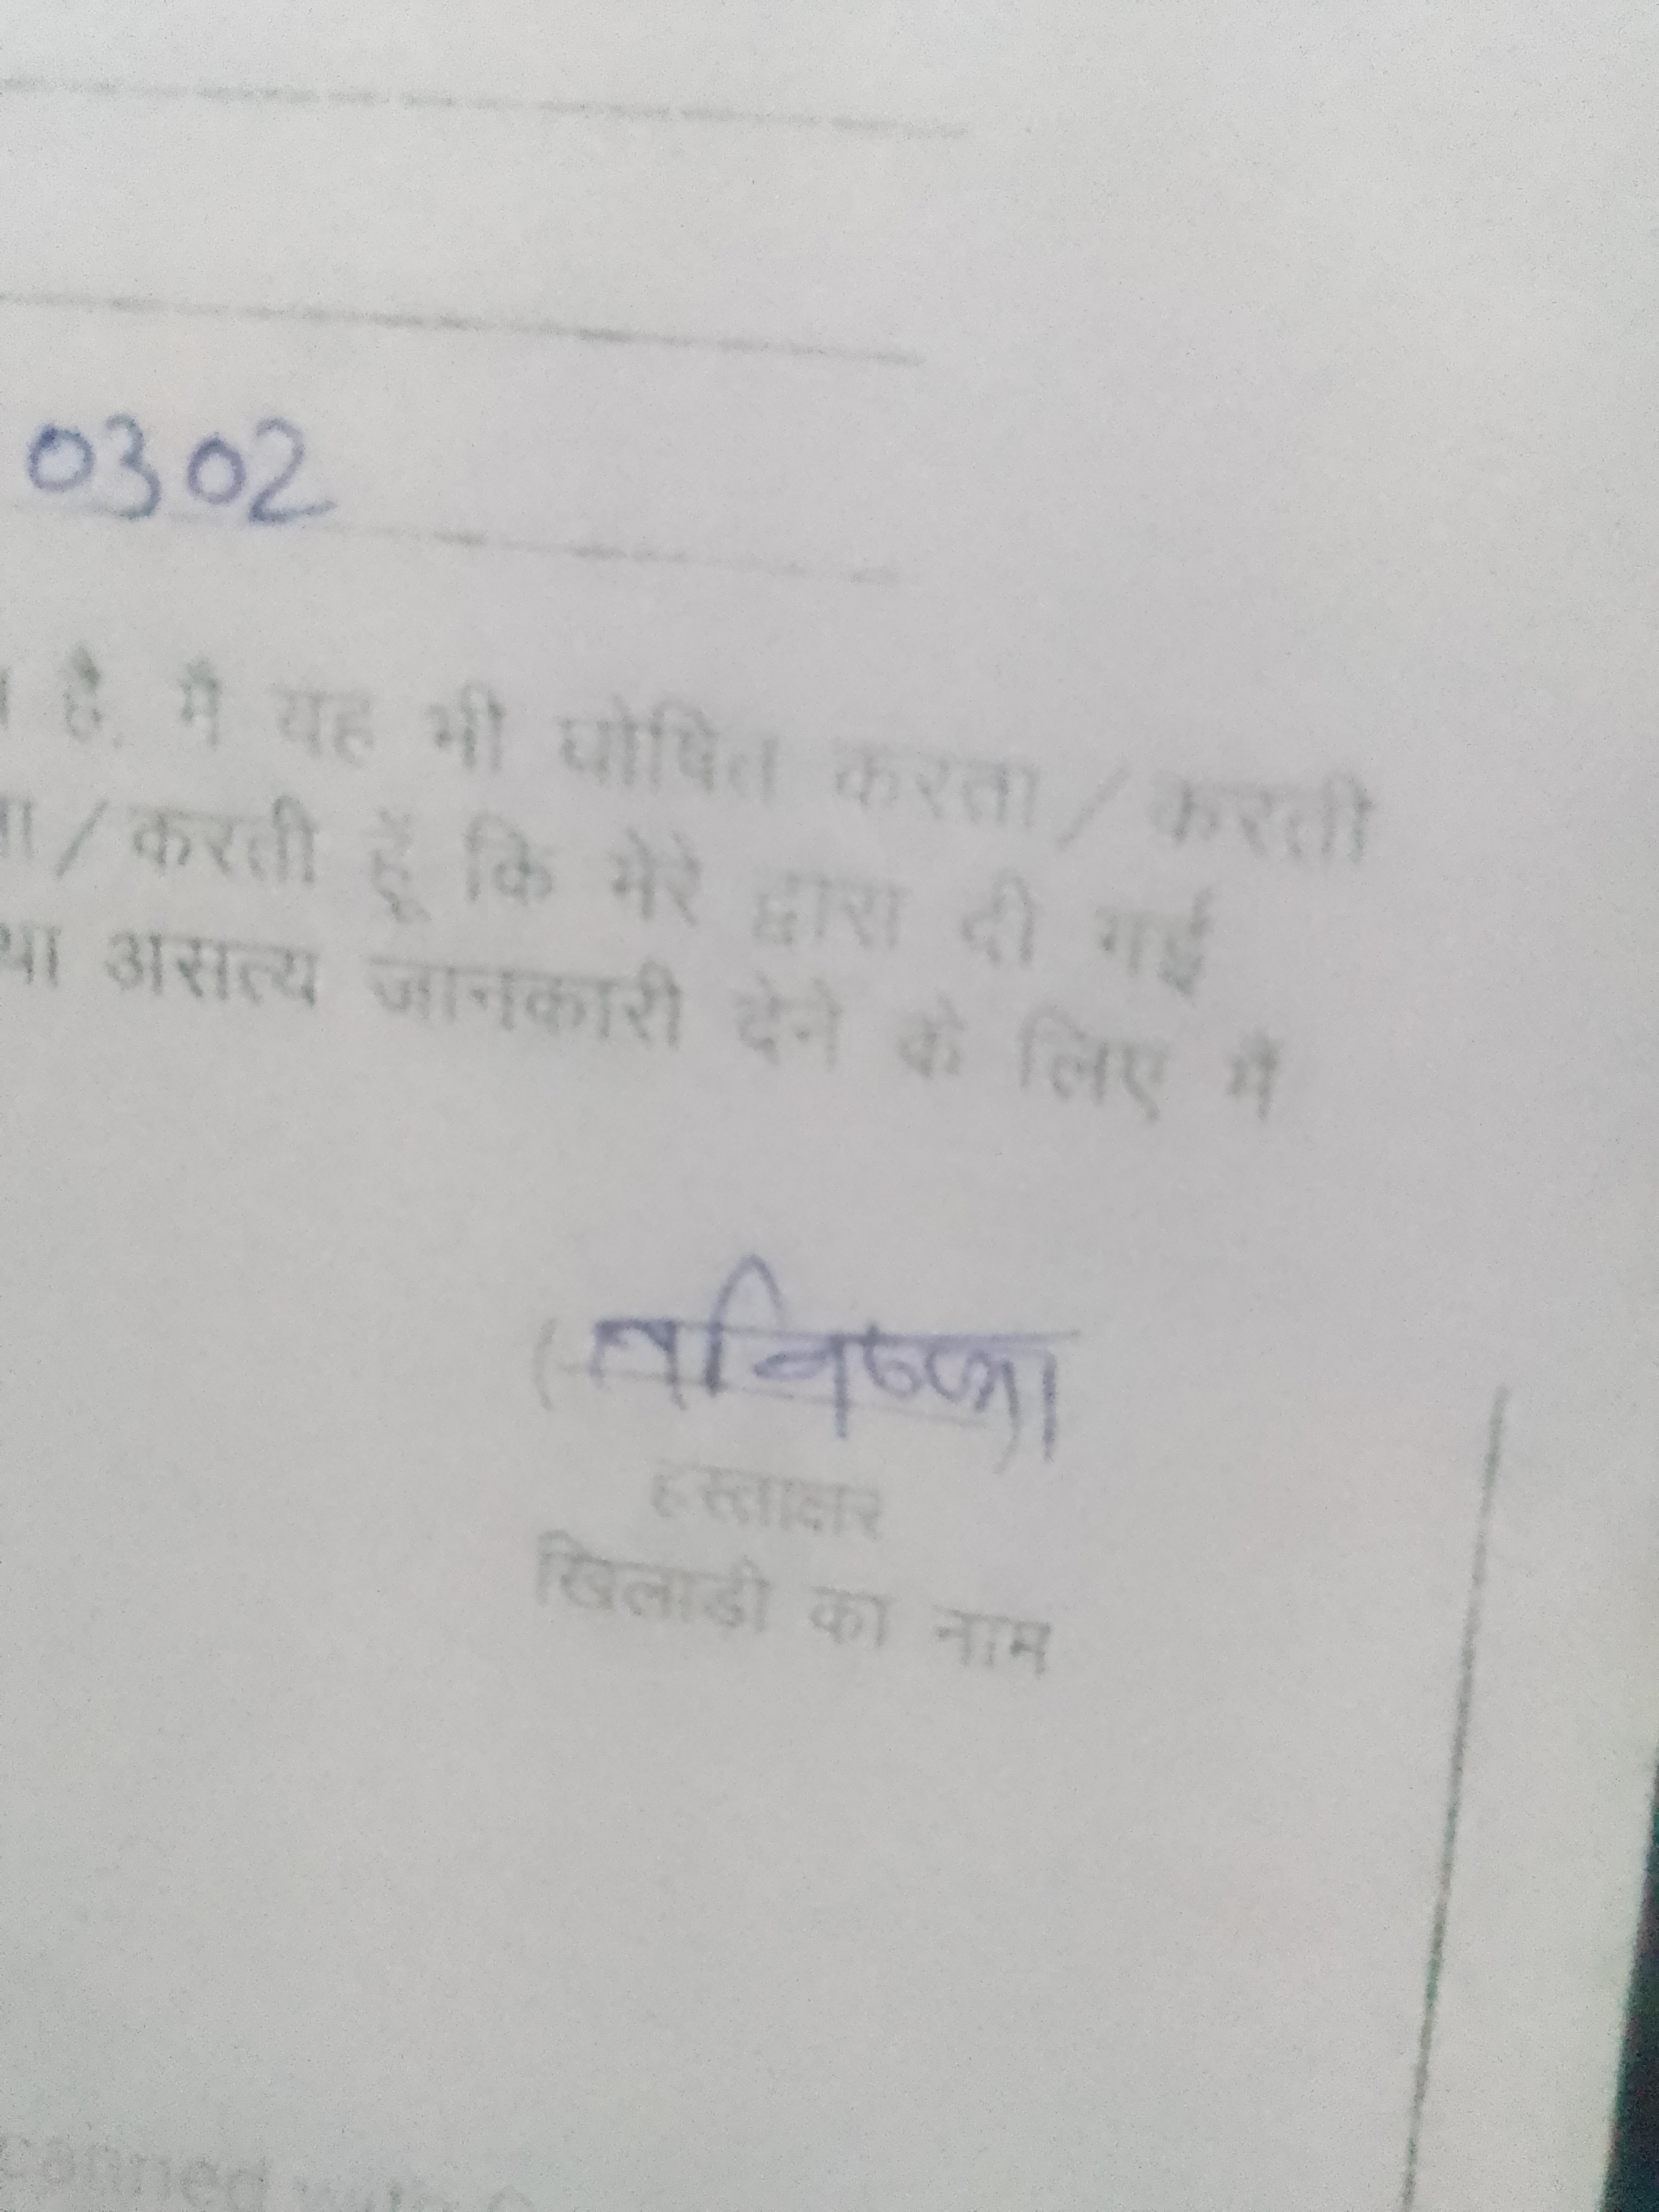 0302
है. मै यह भी घोषित करता / करती
/ करती हूँ कि मेरे द्वारा दी गई
असत्य जानकारी देने के लिए मै
( तनिष्का )
हस्ताक्षर
खिलाड़ी का नाम
canned with